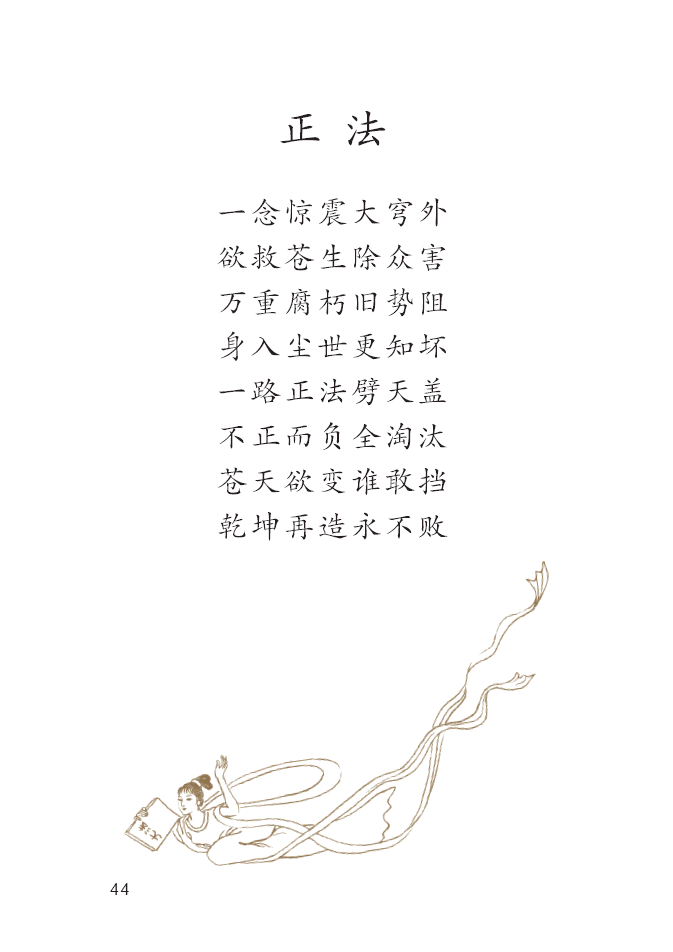 正法
一念惊震大穹外
欲救苍生除众害
万重腐朽旧势阻
身入尘世更知坏
一路正法劈天盖
不正而负全淘汰
苍天欲变谁敢挡
乾坤再造永不败
大法
44